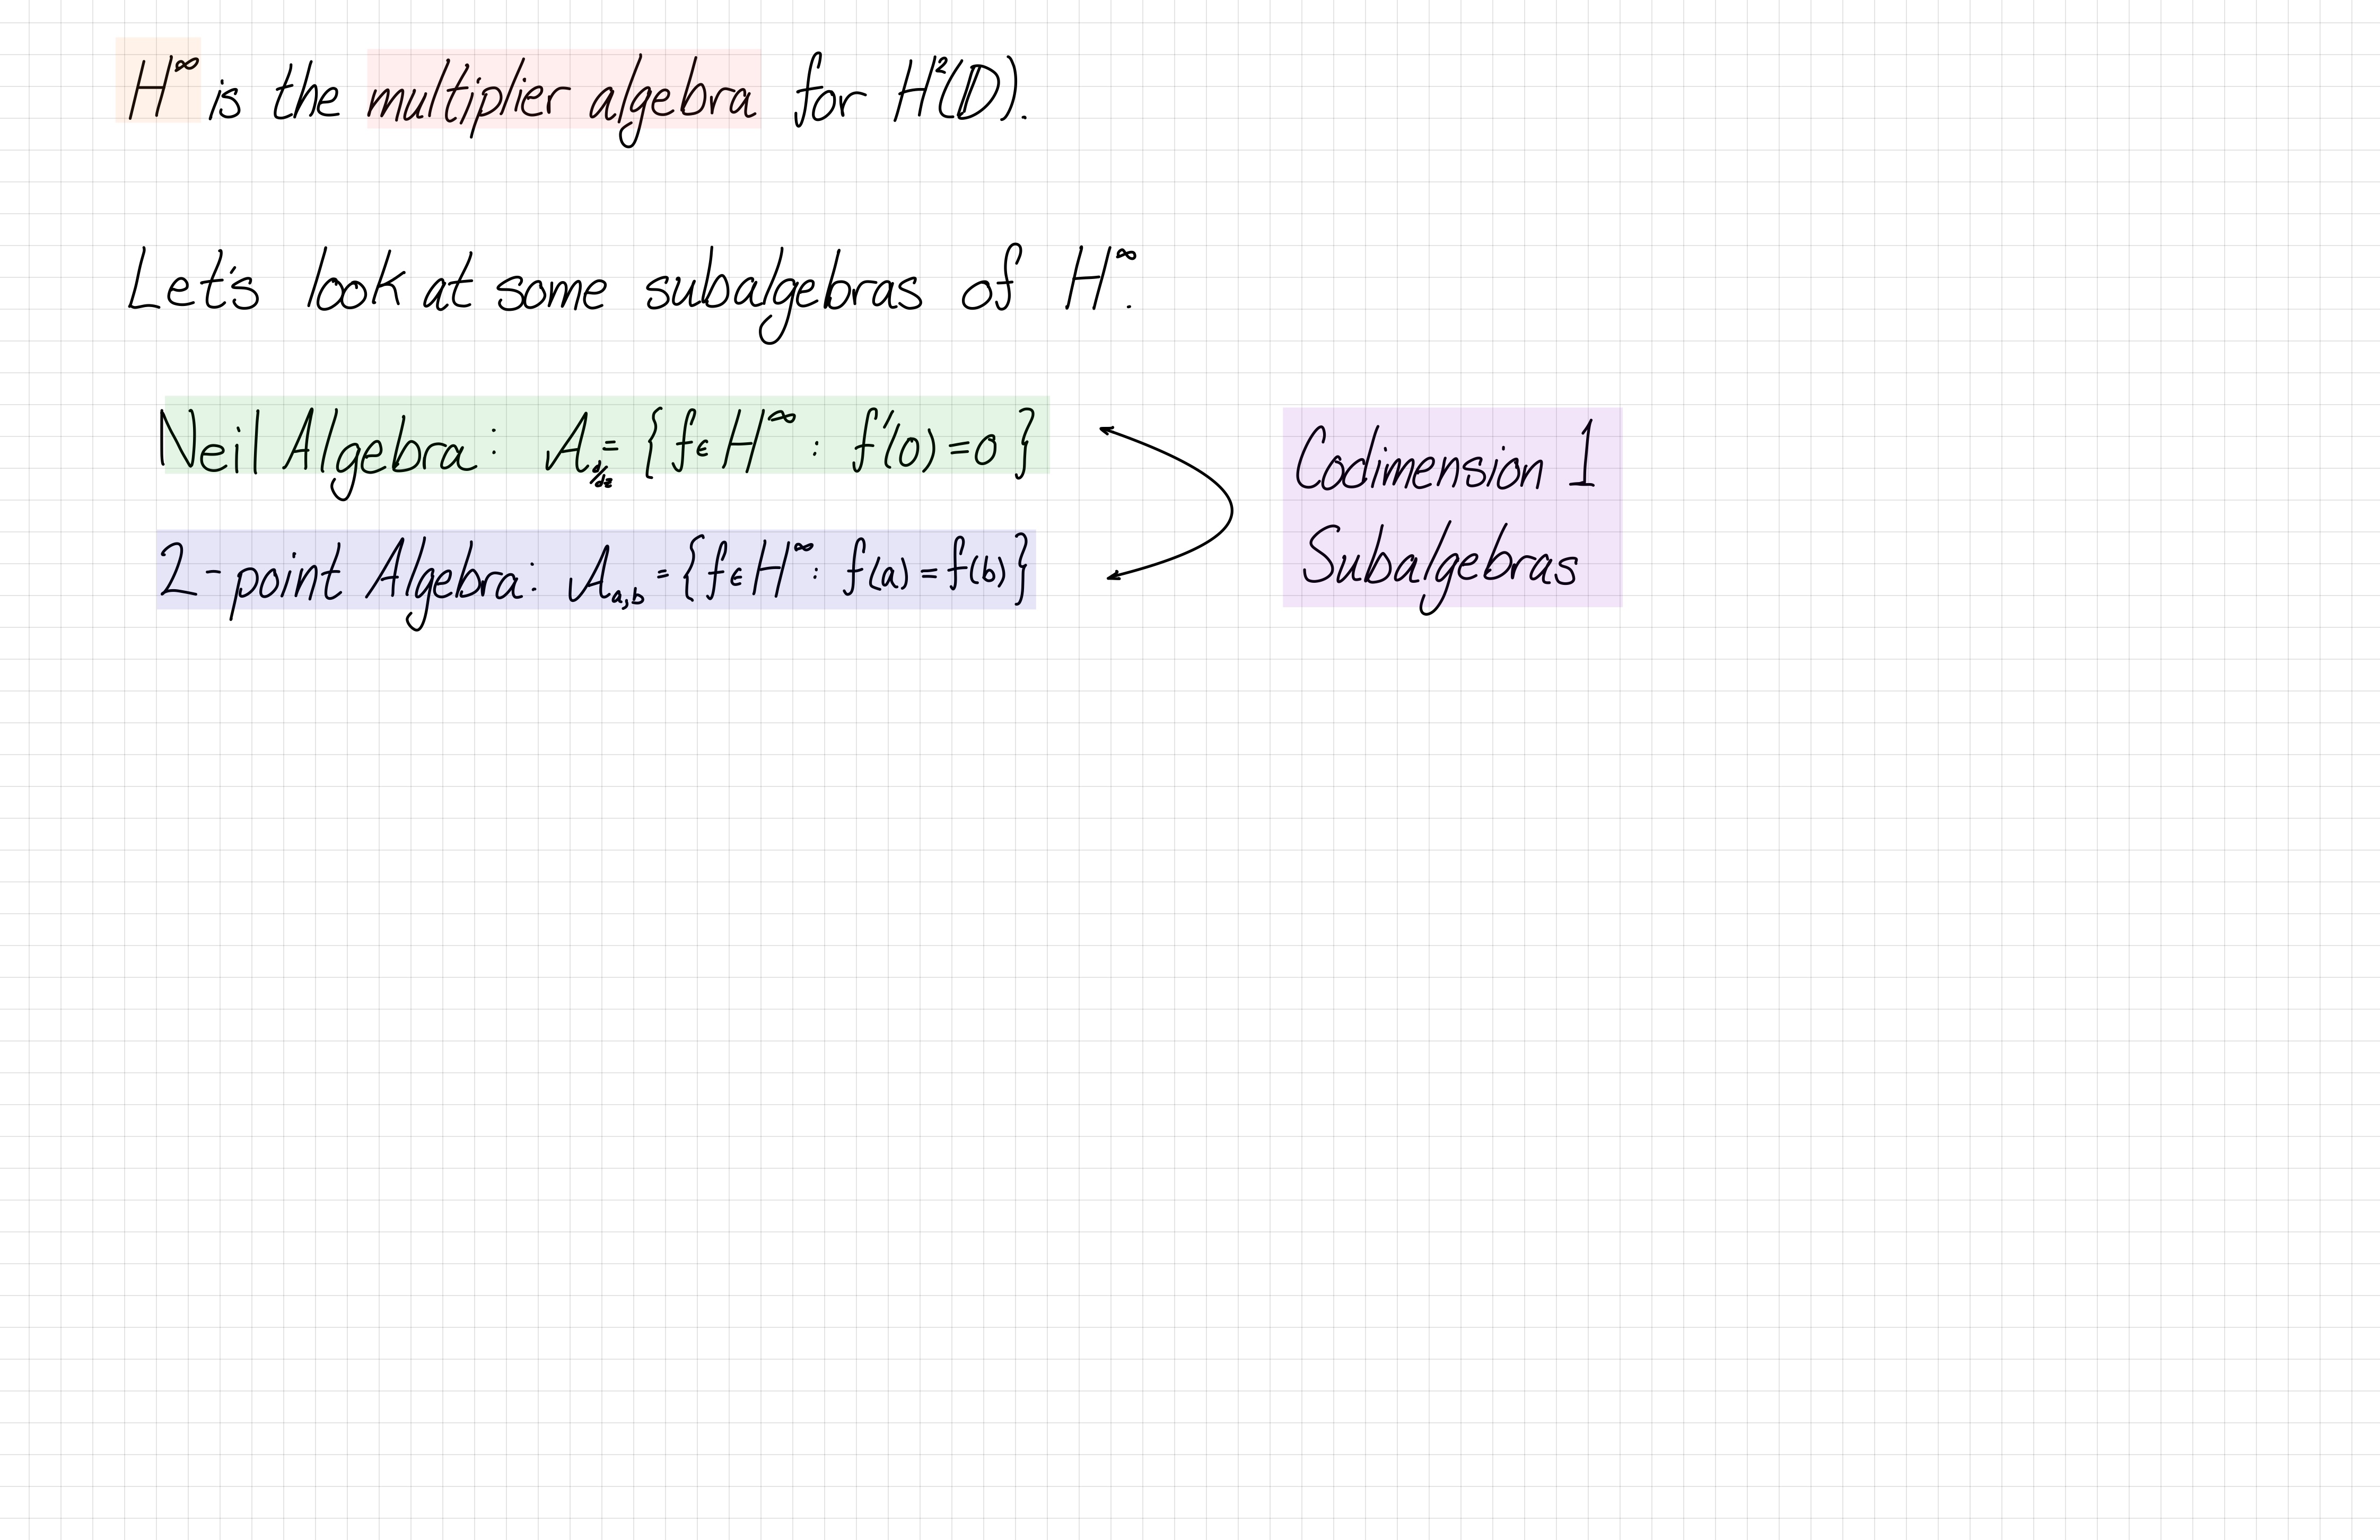 H^∞ is the multiplier algebra for H²(𝔻).
Let's look at some subalgebras of H^∞.
Neil Algebra: A_{d/dz} = {f ∈ H^∞ : f'(0) = 0}
2-point Algebra: A_{a,b} = {f ∈ H^∞ : f(a) = f(b)}
Codimension 1
Subalgebras